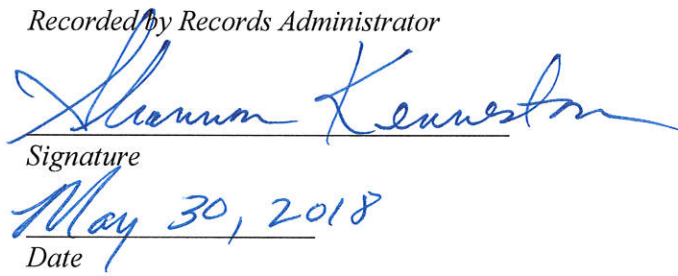 Recorded by Records Administrator
Shannon Kenneston
Signature
May 30, 2018
Date